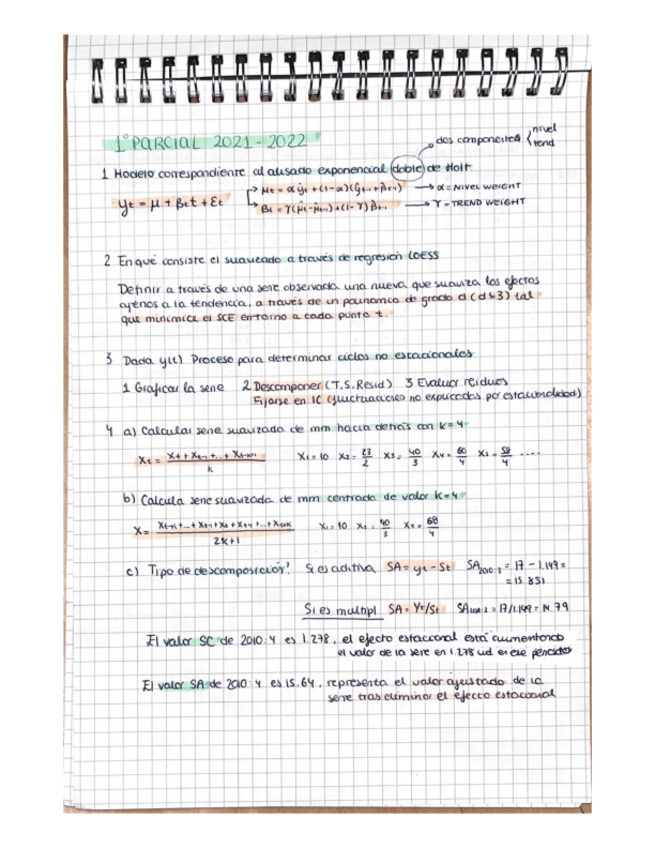 1º PARCIAL 2021-2022
dos componentes
nivel
tend
1 Modelo correspondiente al alisado exponencial doble de Holt
yt = μ + βtt + Ɛt
μt = αŷt + (1-α)(ŷt-1 + β̂t-1) → α = NIVEL WEIGHT
βt = γ(μ̂t - μ̂t-1) + (1-γ)β̂t-1 → γ = TREND WEIGHT
2 En qué consiste el suavizado a través de regresión LOESS
Definir a través de una serie observada una nueva que suaviza los efectos
ajenos a la tendencia, a través de un polinomio de grado d (d≤3) tal
que minimice el SCE entorno a cada punto t.
3 Dada y(t) Proceso para determinar ciclos no estacionales
1 Graficar la serie 2 Descomponer (T, S, Resid) 3 Evaluar residuos
Fijarse en IC (fluctuaciones no explicadas por estacionalidad)
4 a) Calcular serie suavizada de mm hacia detrás con k=4
Xt = Xt + Xt-1 + ... + Xt-k+1 / k X1 = 10 X2 = 23/2 X3 = 40/3 X4 = 60/4 X5 = 58/4 ....
b) Calcula serie suavizada de mm centrada de valor k=4
X = Xt-k + ... + Xt-1 + Xt + Xt+1 + ... + Xt+k / 2k+1 X1 = 10 X2 = 40/3 X3 = 68/4
c) Tipo de descomposición! Si es aditiva SA = yt - St SA2010:3 = 17 - 1.149 =
= 15.851
Si es multipl SA = Yt/St SA = 17/1.149 = 14.79
El valor SC de 2010:4 es 1.278, el efecto estacional está aumentando
el valor de la serie en 1.278 ud en ese periodo
El valor SA de 2010:4 es 15.64, representa el valor ajustado de la
serie tras eliminar el efecto estacional